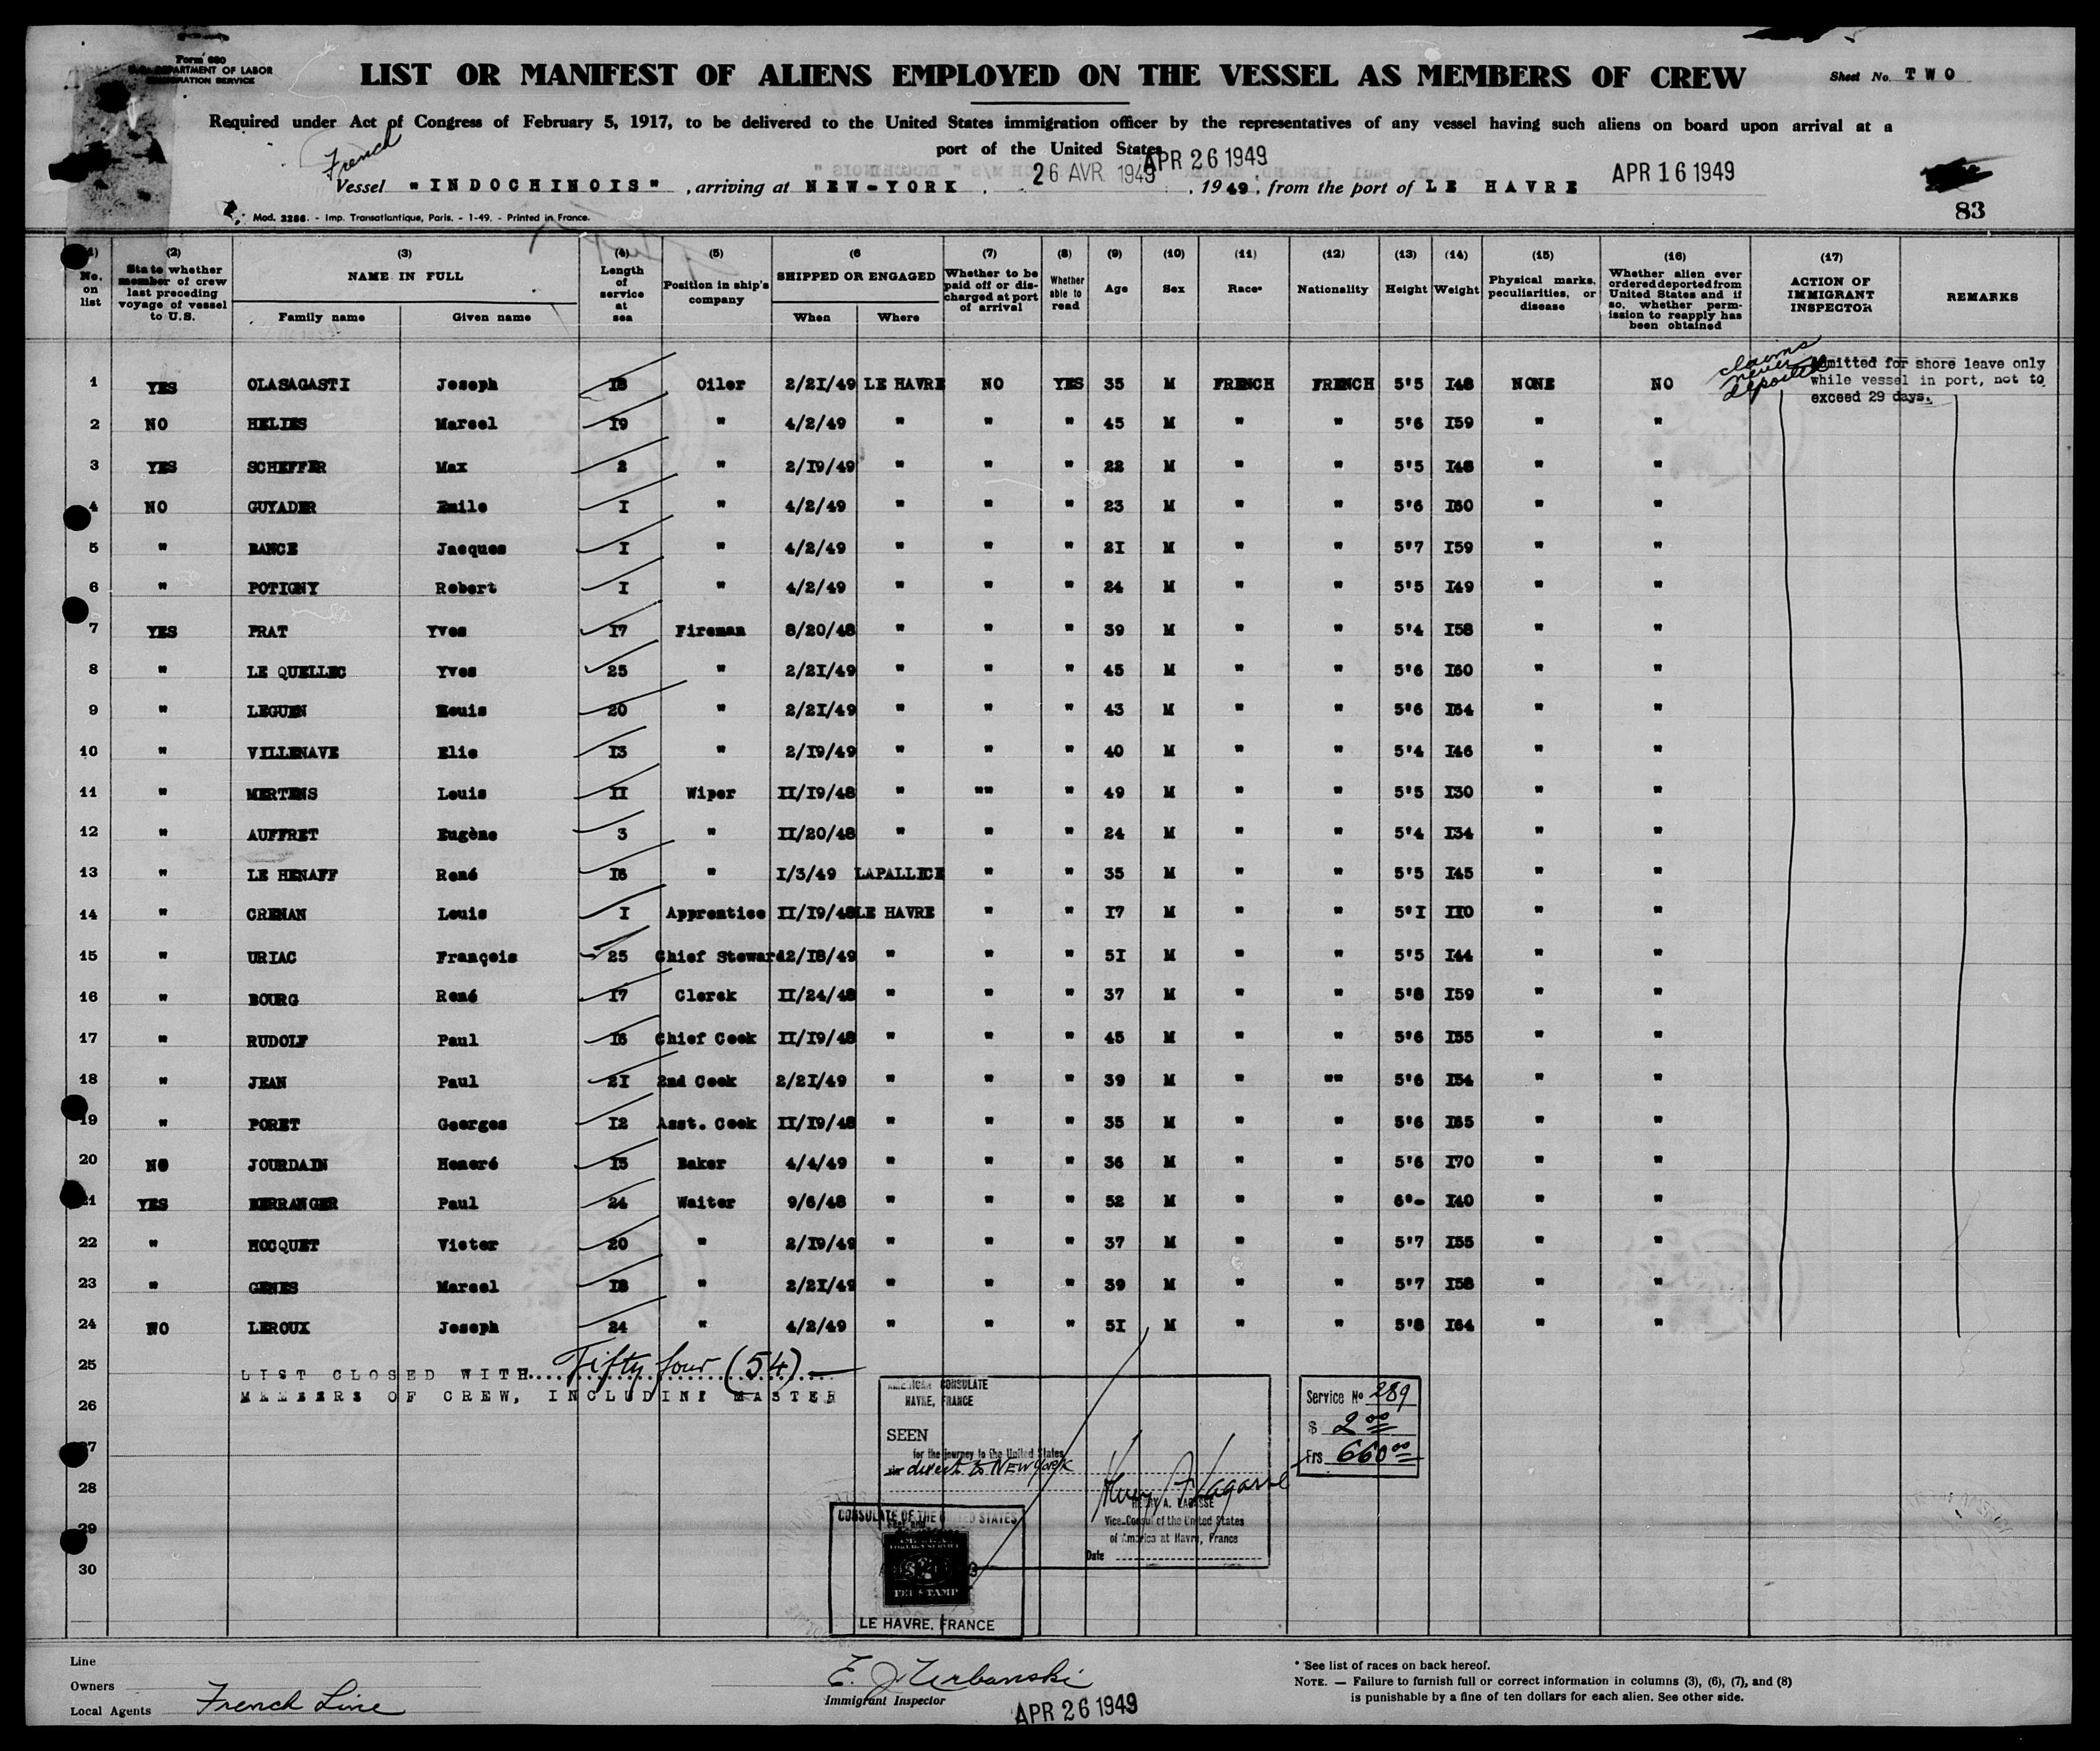 Form 680
DEPARTMENT OF LABOR
IMMIGRATION SERVICE
LIST OR MANIFEST OF ALIENS EMPLOYED ON THE VESSEL AS MEMBERS OF CREW
Sheet No. TWO
Required under Act of Congress of February 5, 1917, to be delivered to the United States immigration officer by the representatives of any vessel having such aliens on board upon arrival at a
port of the United States
French
26 AVR 1949 APR 26 1949
Vessel "INDOCHINOIS", arriving at NEW-YORK, 1949, from the port of LE HAVRE APR 16 1949
83
Mod. 2286. - Imp. Transatlantique, Paris. - 1-49. - Printed in France.
(1) No. on list
(2) State whether member of crew last preceding voyage of vessel to U.S.
(3) NAME IN FULL Family name Given name
(4) Length of service at sea
(5) Position in ship's company
(6 SHIPPED OR ENGAGED When Where
(7) Whether to be paid off or discharged at port of arrival
(8) Whether able to read
(9) Age
(10) Sex
(11) Race*
(12) Nationality
(13) Height
(14) Weight
(15) Physical marks, peculiarities, or disease
(16) Whether alien ever ordered deported from United States and if so, whether permission to reapply has been obtained
(17) ACTION OF IMMIGRANT INSPECTOR
REMARKS
claims never deported
Admitted for shore leave only
while vessel in port, not to
exceed 29 days.
1 YES OLASAGASTI Joseph I8 Oiler 2/2I/49 LE HAVRE NO YES 35 M FRENCH FRENCH 5'5 I48 NONE NO
2 NO HELIES Marcel I9 " 4/2/49 " " " 45 M " " 5'6 I59 " "
3 YES SCHEFFER Max 2 " 2/I9/49 " " " 22 M " " 5'5 I48 " "
4 NO GUYADER Emile I " 4/2/49 " " " 23 M " " 5'6 I60 " "
5 " BANCE Jacques I " 4/2/49 " " " 2I M " " 5'7 I59 " "
6 " POTIGNY Robert I " 4/2/49 " " " 24 M " " 5'5 I49 " "
7 YES PRAT Yves I7 Fireman 8/20/48 " " " 39 M " " 5'4 I58 " "
8 " LE QUELLEC Yves 25 " 2/2I/49 " " " 45 M " " 5'6 I60 " "
9 " LEGUEN Louis 20 " 2/2I/49 " " " 43 M " " 5'6 I64 " "
10 " VILLENAVE Elie I3 " 2/I9/49 " " " 40 M " " 5'4 I46 " "
11 " MERTENS Louis II Wiper II/I9/48 " "" " 49 M " " 5'5 I30 " "
12 " AUFFRET Eugène 3 " II/20/48 " " " 24 M " " 5'4 I34 " "
13 " LE HENAFF René I6 " I/3/49 LAPALLICE " " 35 M " " 5'5 I45 " "
14 " CRENAN Louis I Apprentice II/I9/48 LE HAVRE " " I7 M " " 5'I II0 " "
15 " URIAC François 25 Chief Steward 2/I8/49 " " " 5I M " " 5'5 I44 " "
16 " BOURG René I7 Clerek II/24/48 " " " 37 M " " 5'8 I59 " "
17 " RUDOLF Paul I6 Chief Cook II/I9/48 " " " 45 M " " 5'6 I55 " "
18 " JEAN Paul 2I 2nd Cook 2/2I/49 " " " 39 M " "" 5'6 I54 " "
19 " PORET Georges I2 Asst. Cook II/I9/48 " " " 35 M " " 5'6 I65 " "
20 NO JOURDAIN Honoré I5 Baker 4/4/49 " " " 36 M " " 5'6 I70 " "
21 YES BERRANGER Paul 24 Waiter 9/6/48 " " " 52 M " " 6'- I40 " "
22 " HOCQUET Victor 20 " 2/I9/49 " " " 37 M " " 5'7 I55 " "
23 " GENES Marcel I8 " 2/2I/49 " " " 39 M " " 5'7 I58 " "
24 NO LEROUX Joseph 24 " 4/2/49 " " " 5I M " " 5'8 I64 " "
25 LIST CLOSED WITH Fifty four (54)
26 MEMBERS OF CREW, INCLUDING MASTER
27
28
29
30
AMERICAN CONSULATE
HAVRE, FRANCE
SEEN
for the journey to the United States
via direct to NEW YORK
Henry A. Lagasse
HENRY A. LAGASSE
Vice-Consul of the United States
of America at Havre, France
Date
Service No 289
$ 2 00
Frs 660 00
CONSULATE OF THE UNITED STATES
AMERICAN
FOREIGN SERVICE
FEE STAMP
LE HAVRE, FRANCE
Line
Owners
Local Agents French Line
E. J. Urbanski
Immigrant Inspector
APR 26 1949
* See list of races on back hereof.
NOTE. — Failure to furnish full or correct information in columns (3), (6), (7), and (8)
is punishable by a fine of ten dollars for each alien. See other side.